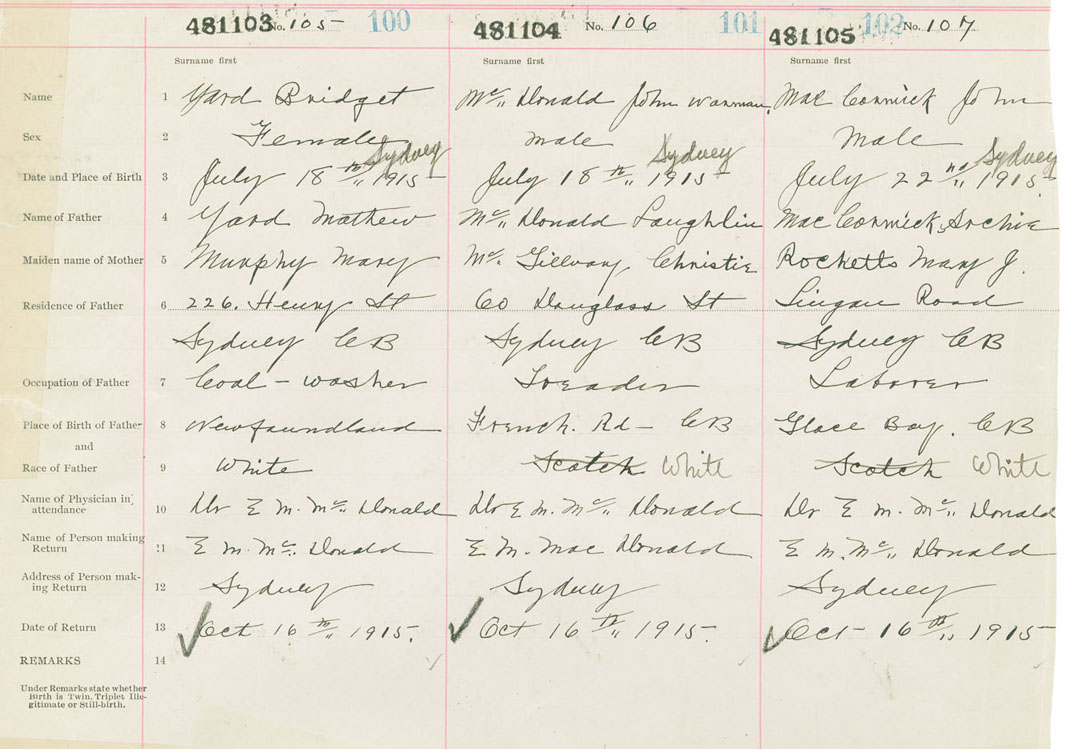 481103 No. 105 100 481104 No. 106 101 481105 102 No. 107
Surname first Surname first Surname first
Name 1 Yard Bridget Mc Donald John Mac Cormick John
Sex 2 Female male Male
Sydney Sydney Sydney
Date and Place of Birth 3 July 18th 1915 July 18th 1915 July 22nd 1915
Name of Father 4 Yard Mathew Mc Donald Laughlin Mac Cormick, Archie
Maiden name of Mother 5 Murphy Mary Mc. Gillvary Christie Rocketts Mary J.
Residence of Father 6 226. Henry St 60 Douglass St Lingan Road
Sydney CB Sydney CB Sydney CB
Occupation of Father 7 Coal - washer Laborer
Place of Birth of Father 8 Newfoundland French. Rd - CB Glace Bay. CB
and
Race of Father 9 White Scotch White Scotch White
Name of Physician in attendance 10 Dr E M. Mc. Donald Dr E M. Mc. Donald Dr E M. Mc. Donald
Name of Person making Return 11 E M. Mc. Donald E M. Mac Donald E M. Mc. Donald
Address of Person mak-
ing Return 12 Sydney Sydney Sydney
Date of Return 13 Oct 16th 1915. Oct 16th 1915. Oct 16th 1915
REMARKS 14
Under Remarks state whether
Birth is Twin, Triplet Ille-
gitimate or Still-birth.